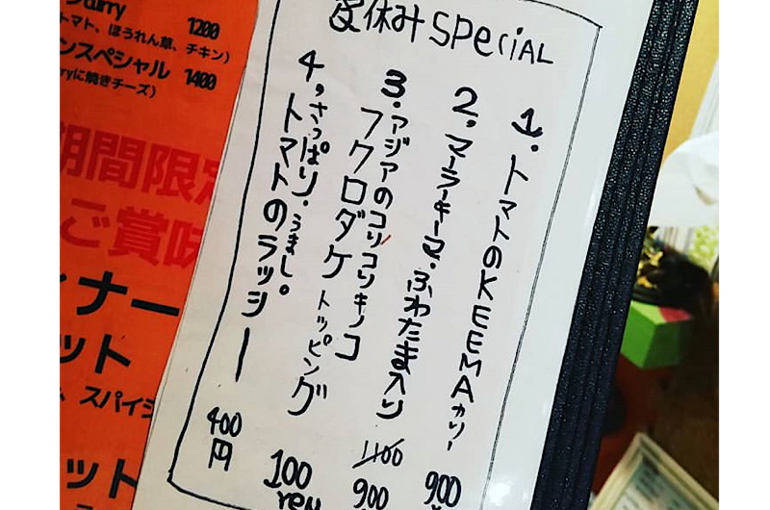 夏休みSPeciAL
1. トマトのKEEMAカリー
900
2. マーラーキーマ・ふわたま入り
1100
900
3. アジアのコリコリキノコ
フクロダケトッピング
100
yen
4. さっぱり・うまし。
トマトのラッシー
400
円
Curry 1200
トマト、ほうれん草、チキン)
ンスペシャル 1400
rryに焼きチーズ)
期間限定
ご賞味
ィナー
ット
、スパイシ
ット